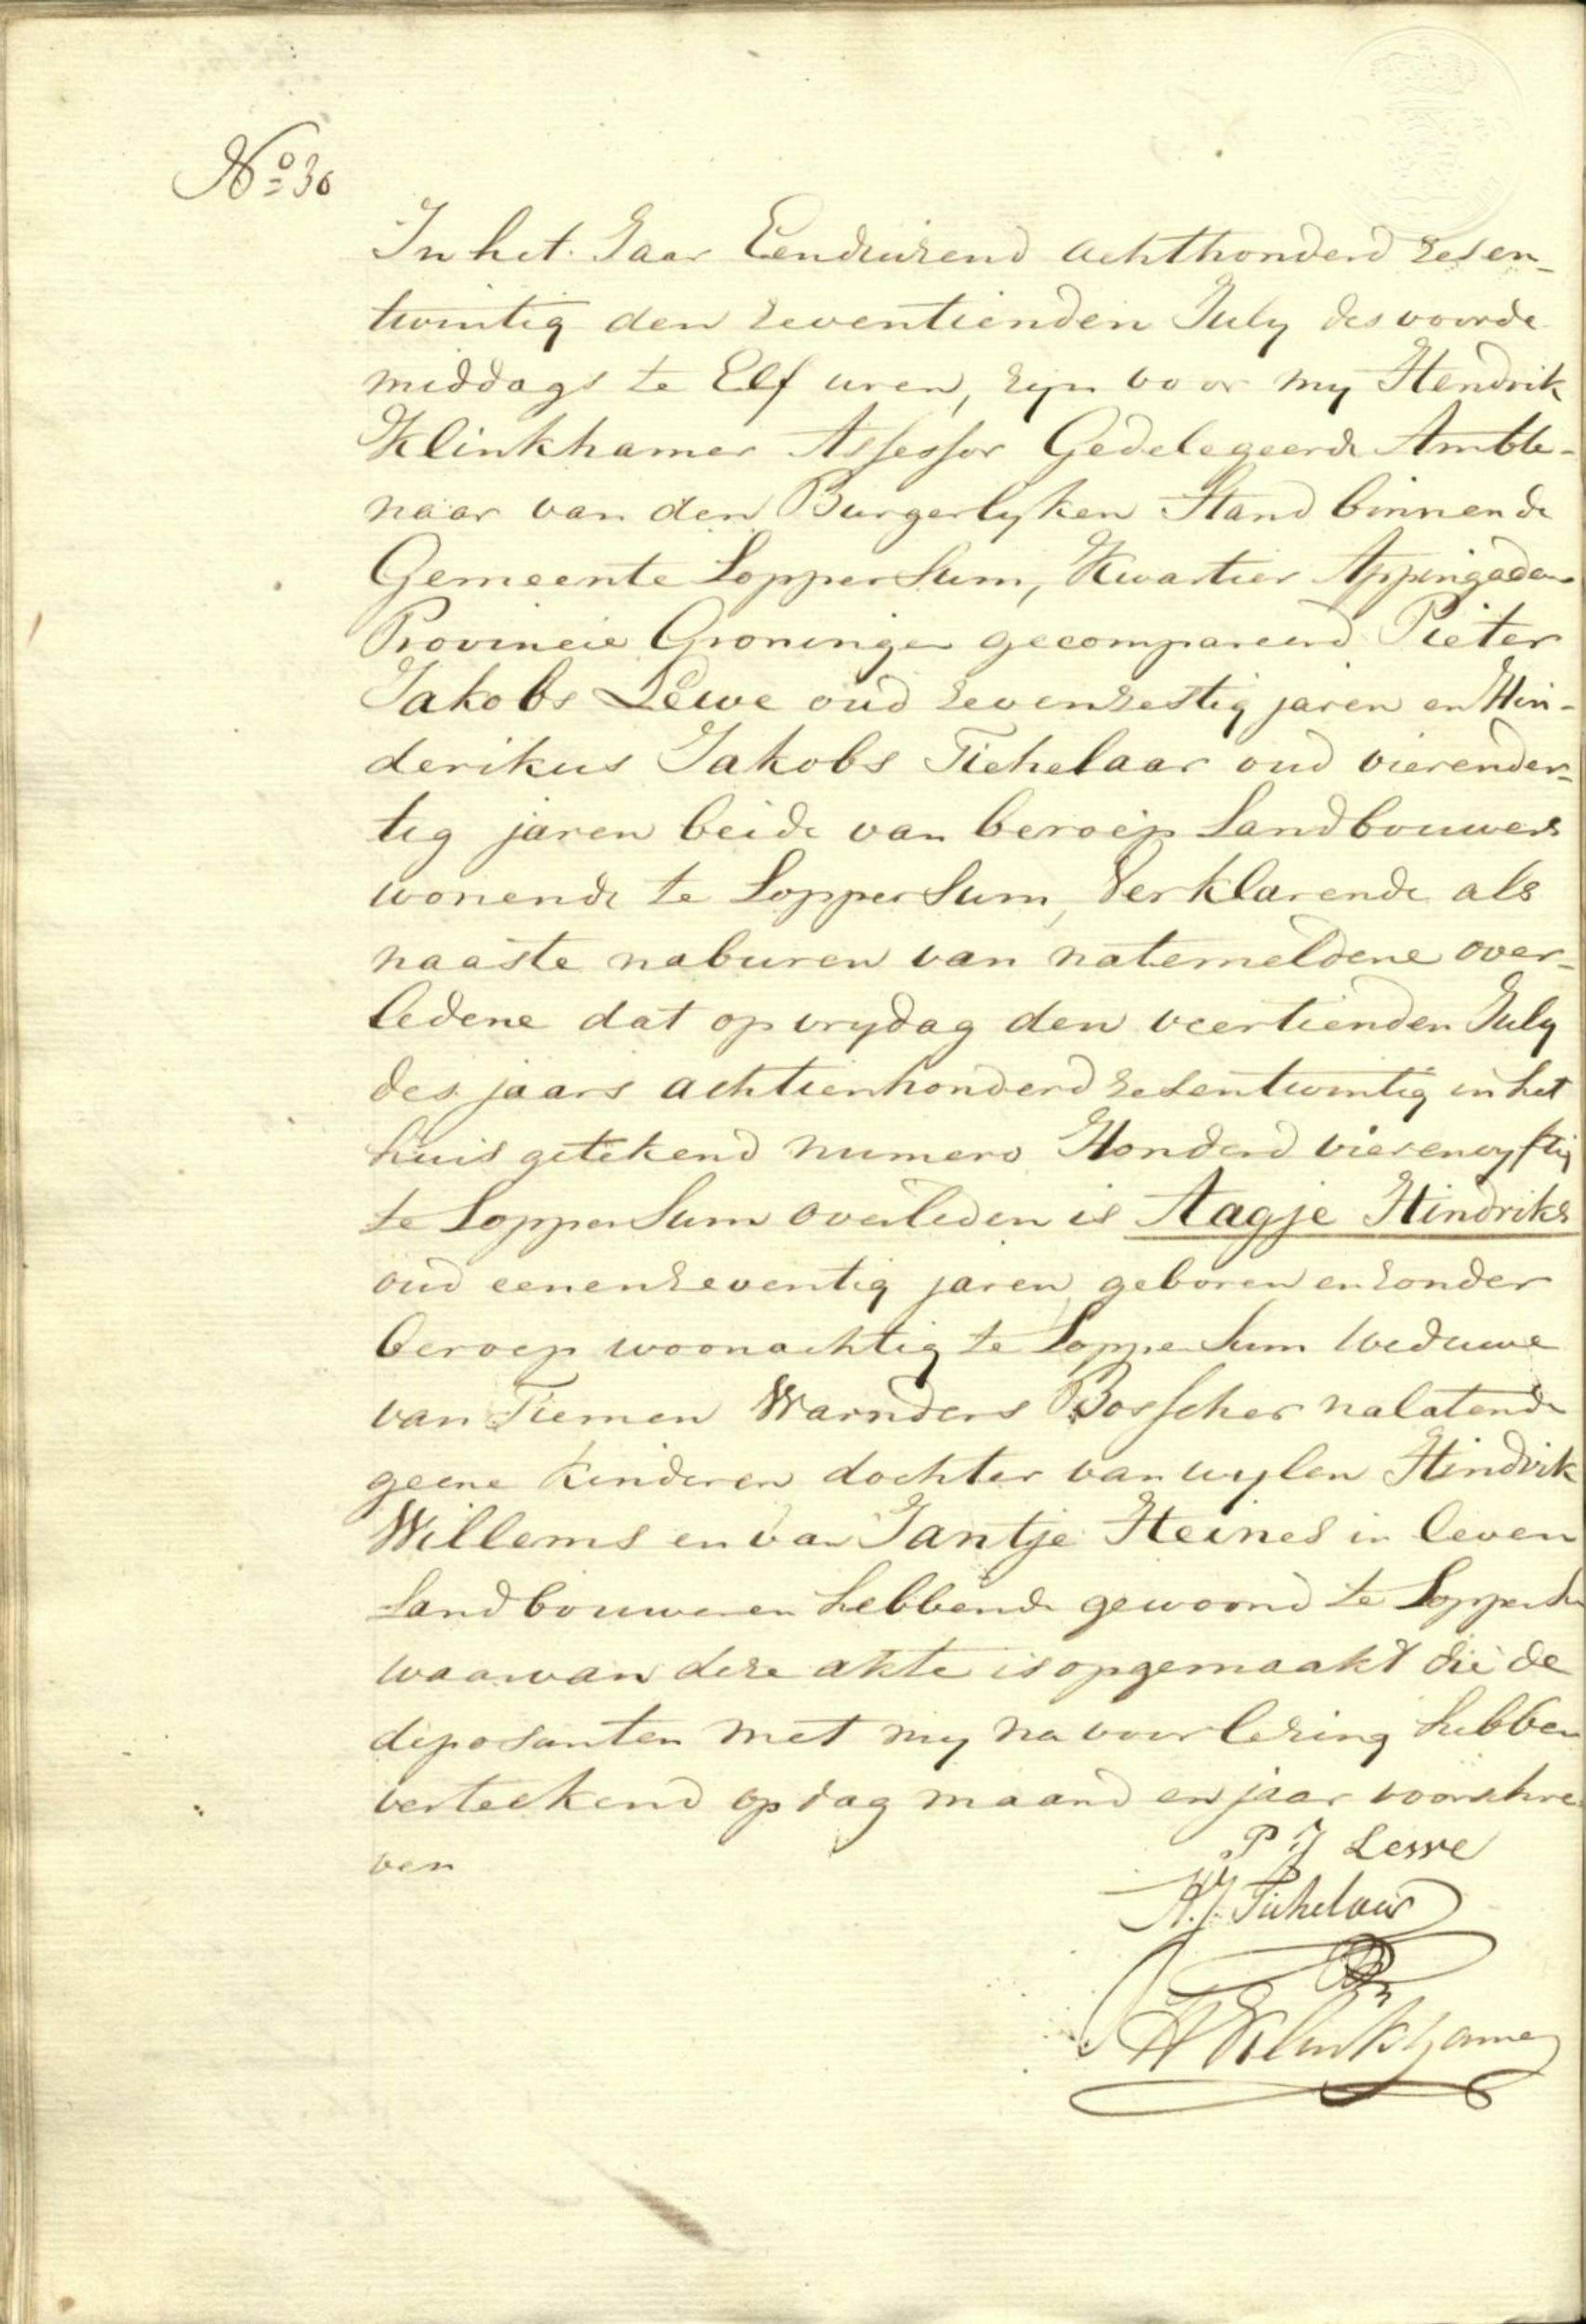 No 30
In het Jaar Eenduizend achthonderd zesen-
twintig den zeventienden July des voorde
middags te Elf uren, zijn voor my Hendrik
Klinkhamer Assessor Gedelegeerde Ambte-
naar van den Burgerlyken Stand binnen de
Gemeente Loppersum, Kwartier Appingadam
Provincie Groningen gecompareerd Pieter
Jakobs Lewe oud zevenzestig jaren en Hin-
derikus Jakobs Tichelaar oud vierender-
tig jaren beide van beroep Landbouwers
wonende te Loppersum, Verklarende als
naaste naburen van natemeldene over-
ledene dat op vrydag den veertienden July
des jaars achttienhonderd zesentwintig in het
huis getekend numero Honderd vierenvyftig
te Loppersum overleden is Aagje Hindriks
oud eenenzeventig jaren, geboren en zonder
beroep woonachtig te Loppersum Weduwe
van Tiemen Warnders Bosscher nalatende
geene kinderen dochter van wylen Hindrik
Willems en van Jantje Heines in leven
Landbouweren hebbende gewoond te Loppersum
waarvan deze akte is opgemaakt die de
deposanten met my na voorlezing hebben
verteekend op dag maand en jaar voorschre
ven
P J Lewe
H. J. Tichelaar
H Klinkhamer